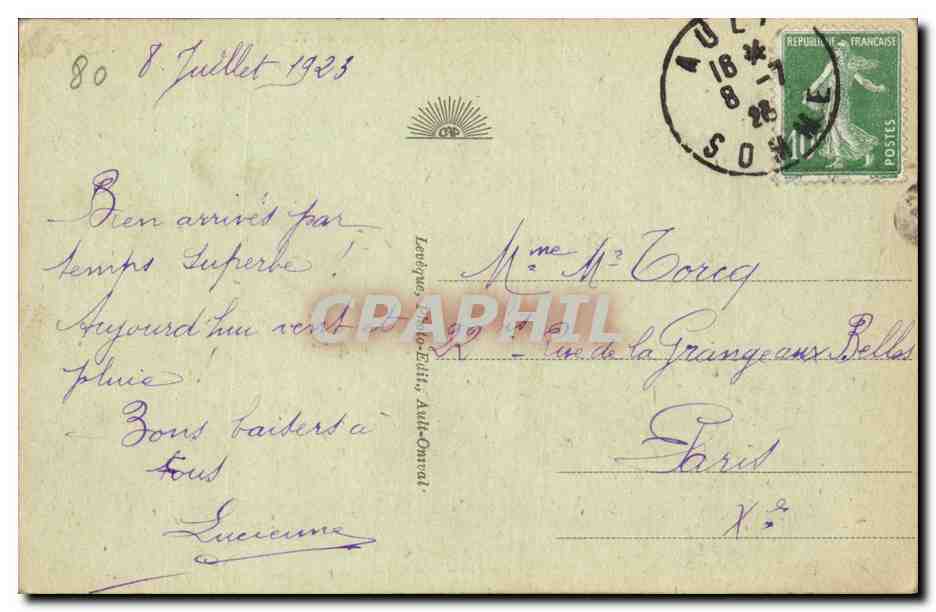 80
8. Juillet 1923
Bien arrivés par
temps superbe !
Aujourd'hui vent et
pluie !
Bons baisers à
tous
Lucienne
Levêque, Photo-Edit., Ault-Onival
CPAPHIL
AULT
16 *
8 -7
23
SOMME
REPUBLIQUE FRANÇAISE
10
POSTES
Mme Mce Torcq
22 Rue de la Grange aux Belles
Paris
Xe